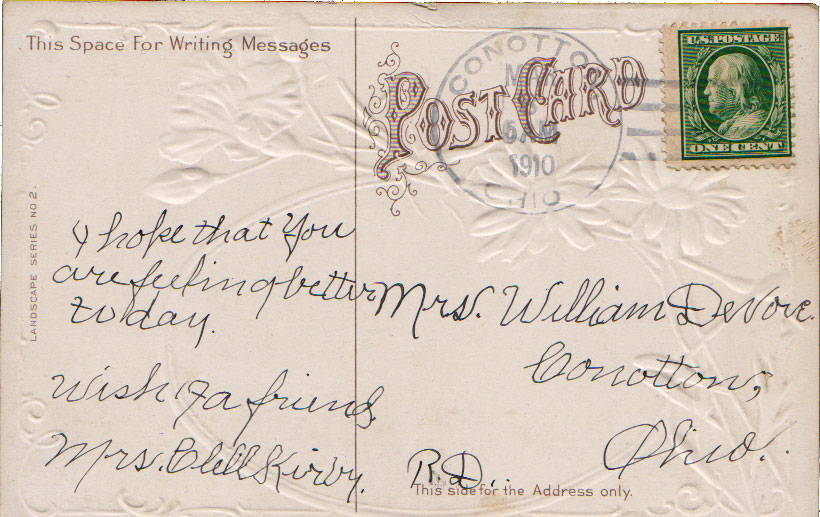 This Space For Writing Messages
POST CARD
CONOTTON
1910
OHIO
U.S. POSTAGE
ONE CENT
LANDSCAPE SERIES No 2.
I hope that You
are feeling better
to day.
Wish of a friend,
Mrs. Clell Kirby.
Mrs. William DeVore.
Conotton,
Ohio.
R.D.
This side for the Address only.